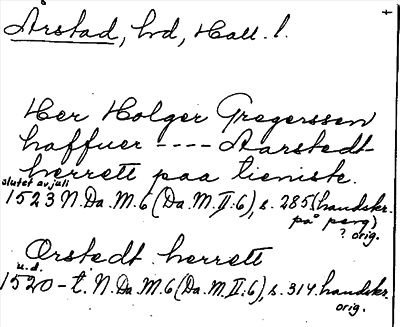 Årstad, hd, Hall. l.
+
Her Holger Gregerssen
haffuer ---- Aarstedt-
herrett paa tieniste.
slutet av juli
1523 N.Da.M.6 (Da.M.II:6), s. 285 (handskr.
på perg)
? orig.
Ørstedt herrett
u.d.
1520-t. N.Da.M.6 (Da.M.II:6), s. 314. handskr.
orig.